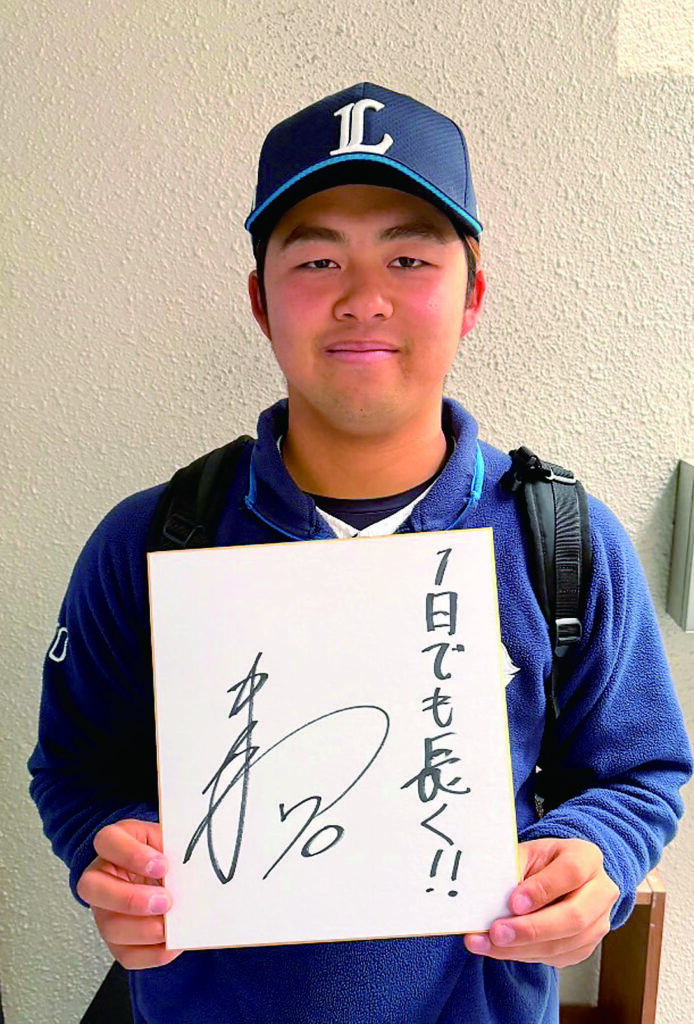 L
1日でも長く!!
70